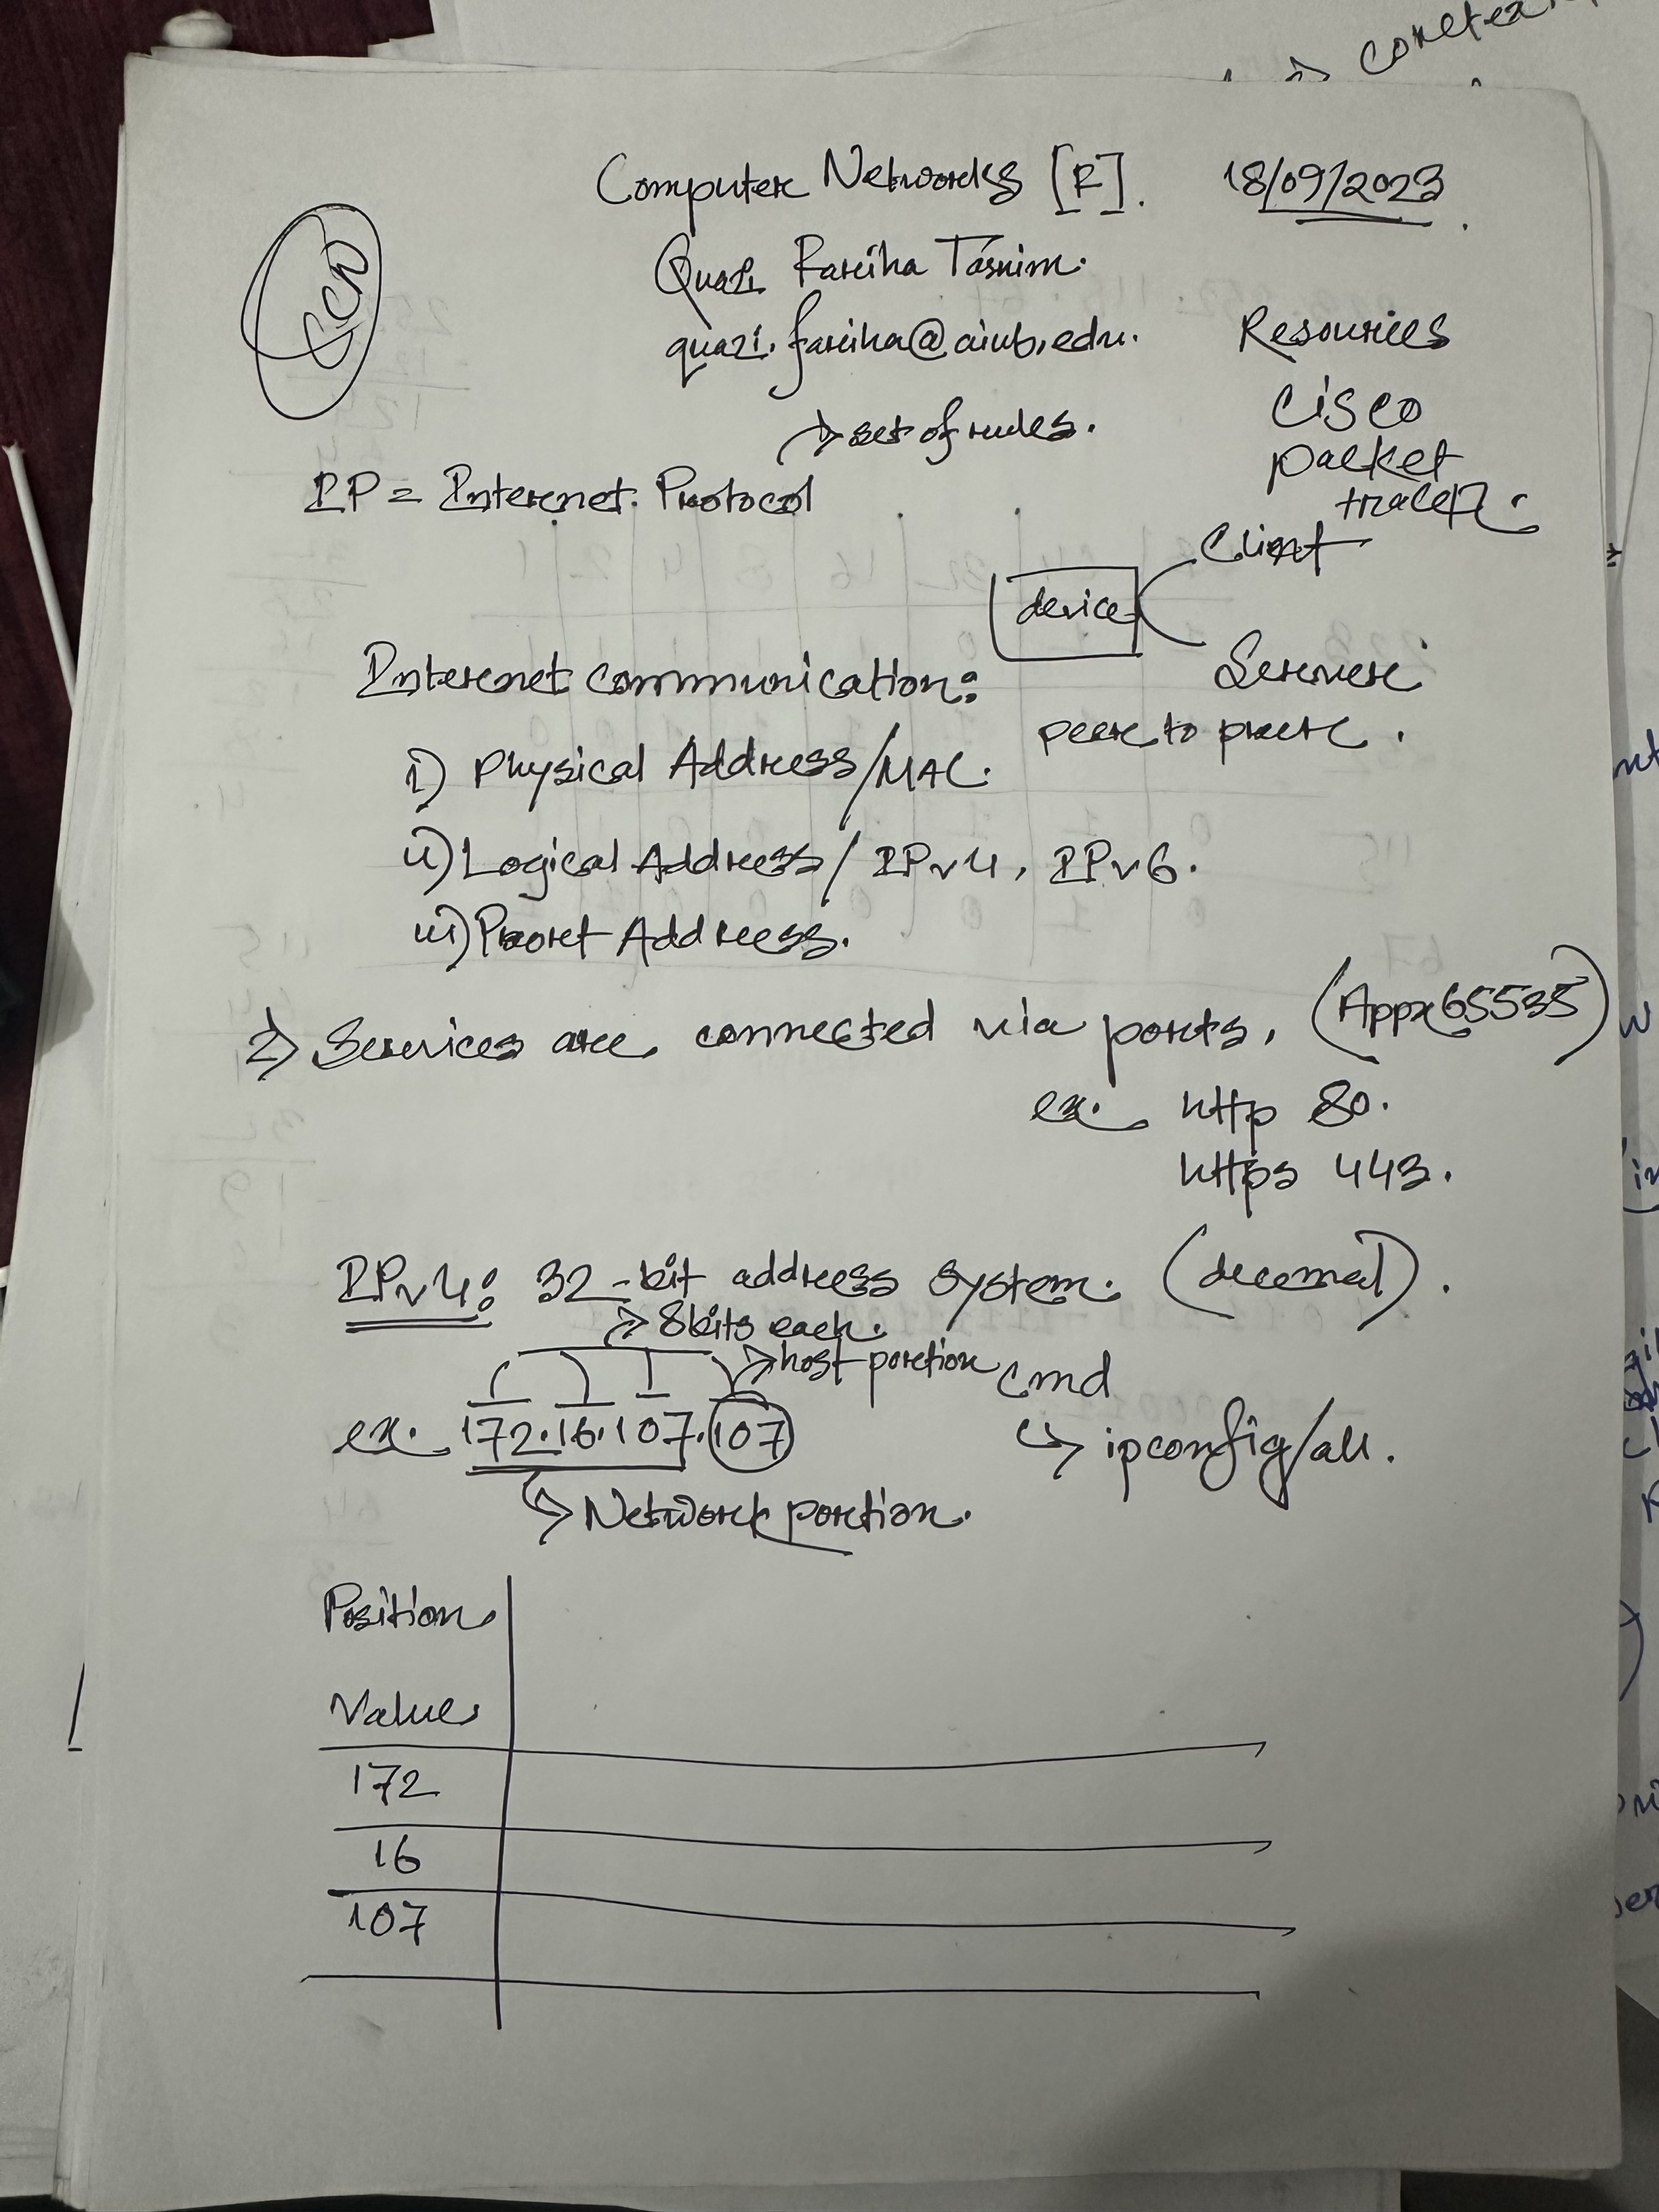 Computer Networks [F]. 18/09/2023
Quazi Fariha Tasnim.
quazi.fariha@aiub.edu.
Resources
Cisco
packet
tracer.
→ set of rules.
IP = Internet Protocol
device
Client
Server
peer to peer.
Internet communication:
i) Physical Address/MAC.
ii) Logical Address/ IPv4, IPv6.
iii) Port Address.
2) Services are connected via ports. (Appx 65535)
ex. http 80.
https 443.
IPv4: 32-bit address system. (decemal).
→ 8bits each.
→ host portion
ex. 172.16.107.107
→ Network portion.
cmd
↳ ipconfig/all.
Position
Value
172
16
107